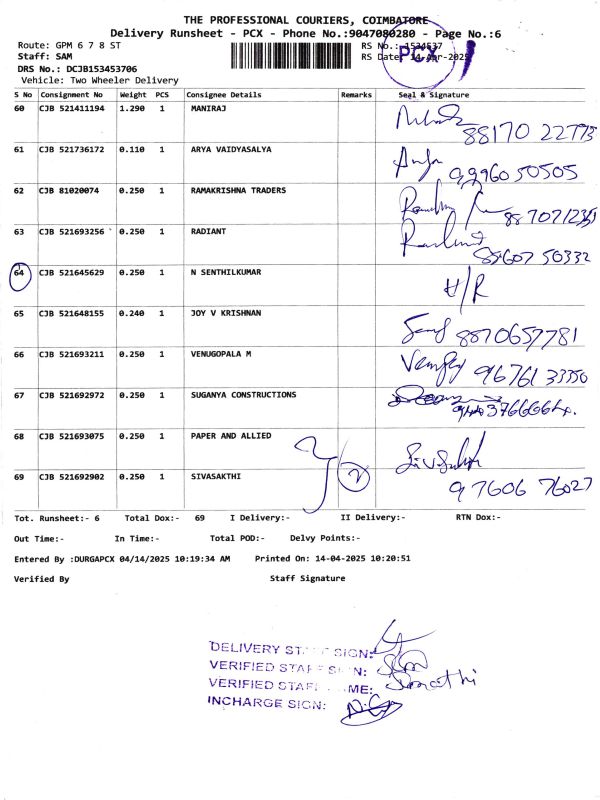 THE PROFESSIONAL COURIERS, COIMBATORE
Delivery Runsheet - PCX - Phone No.:9047080280 - Page No.:6
Route: GPM 6 7 8 ST RS No.: 1534537
Staff: SAM RS Date: 14-Apr-2025
PCX
DRS No.: DCJB153453706
Vehicle: Two Wheeler Delivery
S No Consignment No Weight PCS Consignee Details Remarks Seal & Signature
60 CJB 521411194 1.290 1 MANIRAJ
88170 22773
61 CJB 521736172 0.110 1 ARYA VAIDYASALYA
99960 50505
62 CJB 81020074 0.250 1 RAMAKRISHNA TRADERS
63 CJB 521693256 0.250 1 RADIANT
88607 50332
64 CJB 521645629 0.250 1 N SENTHILKUMAR H/R
65 CJB 521648155 0.240 1 JOY V KRISHNAN
8870657781
66 CJB 521693211 0.250 1 VENUGOPALA M
96761 33350
67 CJB 521692972 0.250 1 SUGANYA CONSTRUCTIONS
68 CJB 521693075 0.250 1 PAPER AND ALLIED
69 CJB 521692902 0.250 1 SIVASAKTHI
97606 76027
Tot. Runsheet:- 6 Total Dox:- 69 I Delivery:- II Delivery:- RTN Dox:-
Out Time:- In Time:- Total POD:- Delvy Points:-
Entered By :DURGAPCX 04/14/2025 10:19:34 AM Printed On: 14-04-2025 10:20:51
Verified By Staff Signature
DELIVERY STAFF SIGN:
VERIFIED STAFF SIGN:
VERIFIED STAFF NAME:
INCHARGE SIGN: